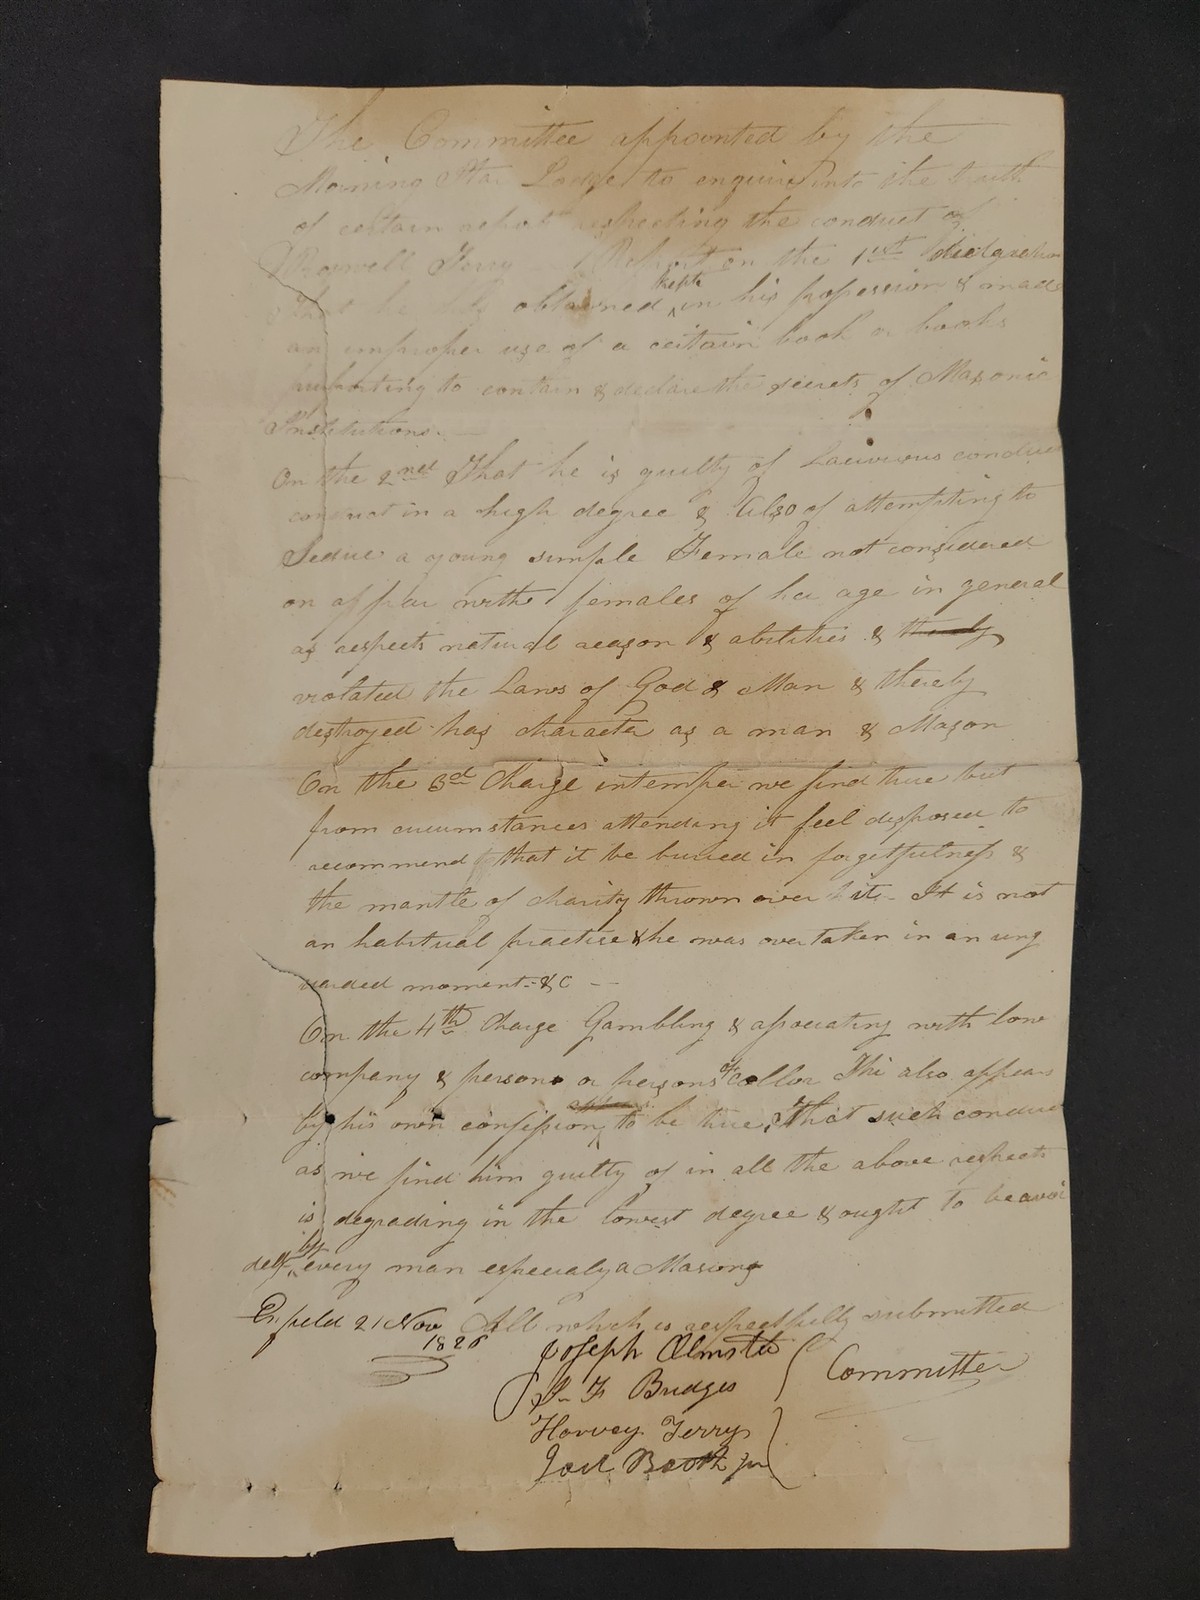 The Committee appointed by the
Morning Star Lodge to enquire into the truth
of certain report respecting the conduct of
Roswell Terry Report on the 1st
That he obtained kept in his possession & made
an improper use of a certain book or books
purporting to contain & declare the secrets of Masonic
Institutions. —
On the 2nd That he is guilty of Lacivious conduct
conduct in a high degree & Also of attempting to
Seduce a young simple Female not considered
on appar with females of her age in general
as respects natural reason & abilities & thereby
violated the Laws of God & Man & thereby
destroyed has character as a man & Mason
On the 3d Charge intemper we find true but
from circumstances attending it feel disposed to
recommend that it be buried in forgetfulness &
the mantle of charity thrown over it - It is not
an habitual practise & he was overtaken in an ung
uarded moment - &c --
On the 4th Charge Gambling & associating with low
company & persons or persons of collor Thi also appears
by his own confission to be true, That such conduct
as we find him guilty of in all the above respects
is degrading in the lowest degree & ought to be avoi
ded by every man especialy a Masons
Enfield 21 Nov All which is respectfully submitted
1826
Joseph Olmsted
F Bridges
Committee
Harvey Terry
Joel Booth Jun